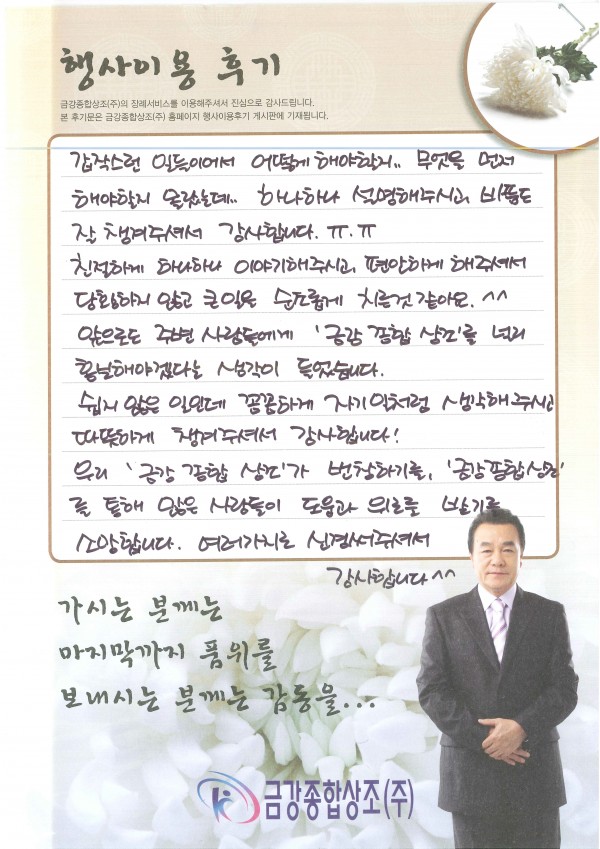 행사이용 후기
금강종합상조(주)의 장례서비스를 이용해주셔서 진심으로 감사드립니다.
본 후기문은 금강종합상조(주) 홈페이지 행사이용후기 게시판에 기재됩니다.
갑작스런 일들이어서 어떻게 해야할지.. 무엇을 먼저
해야할지 몰랐는데.. 하나하나 설명해주시고, 비품도
잘 챙겨주셔서 감사합니다. ㅠ.ㅠ
친절하게 하나하나 이야기해주시고, 편안하게 해주셔서
당황하지 않고 큰일을 순조롭게 치른것 같아요. ^^
앞으로도 주변 사람들에게 '금강 종합 상조'를 널리
홍보해야겠다는 생각이 들었습니다.
쉽지 않은 일인데 꼼꼼하게 자기 일처럼 생각해주시고
따뜻하게 챙겨주셔서 감사합니다!
우리 '금강 종합 상조'가 번창하기를, '금강종합상조'
를 통해 많은 사람들이 도움과 위로를 받기를
소망합니다. 여러가지로 신경써주셔서
감사합니다^^
가시는 분께는
마지막까지 품위를
보내시는 분께는 감동을...
금강종합상조(주)